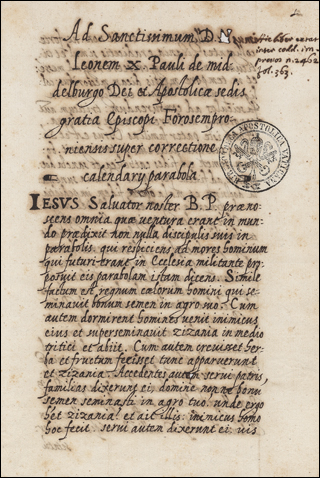 Ad Sanctissimum D. N.
Leonem X Pauli de mid-
delburgo Dei & Apostolicæ sedis
gratia Episcopi Forosempro-
niensis super correctione
calendarÿ parabola
inter codd. im-
pressos n. 2462
fol. 363.
IESVS Saluator noster B. P. præno-
scens omnia quæ uentura erant in mun-
do prædixit non nulla discipulis suis in
parabolis. qui respiciens ad mores hominum
qui futuri erant in Ecclesia militante pro-
posuit eis parabolam istam dicens. Simile
factum est regnum cælorum homini qui se-
minauit bonum semen in agro suo. Cum
autem dormirent homines uenit inimicus
eius et superseminauit zizania in medio
tritici et abiit. Cum autem creuisset her-
ba et fructum fecisset tunc apparuerunt
et zizania. Accedentes autem serui patris
familias dixerunt ei. domine nonne bonum
semen seminasti in agro tuo. unde ergo
habet zizania? et ait illis: inimicus homo
hoc fecit. serui autem dixerunt ei: uis